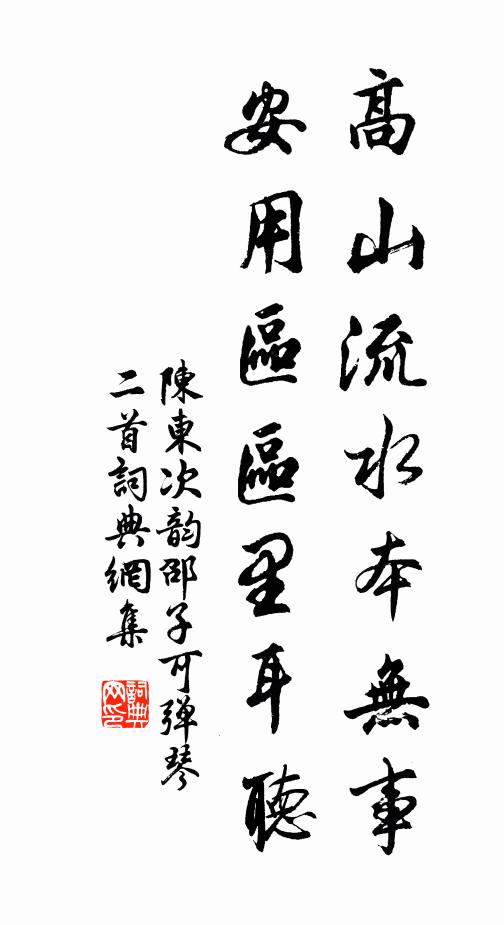 高山流水本無事
安用區區里耳聽
陳東次韵邵子可弹琴
二首詞典網集
詞典網印